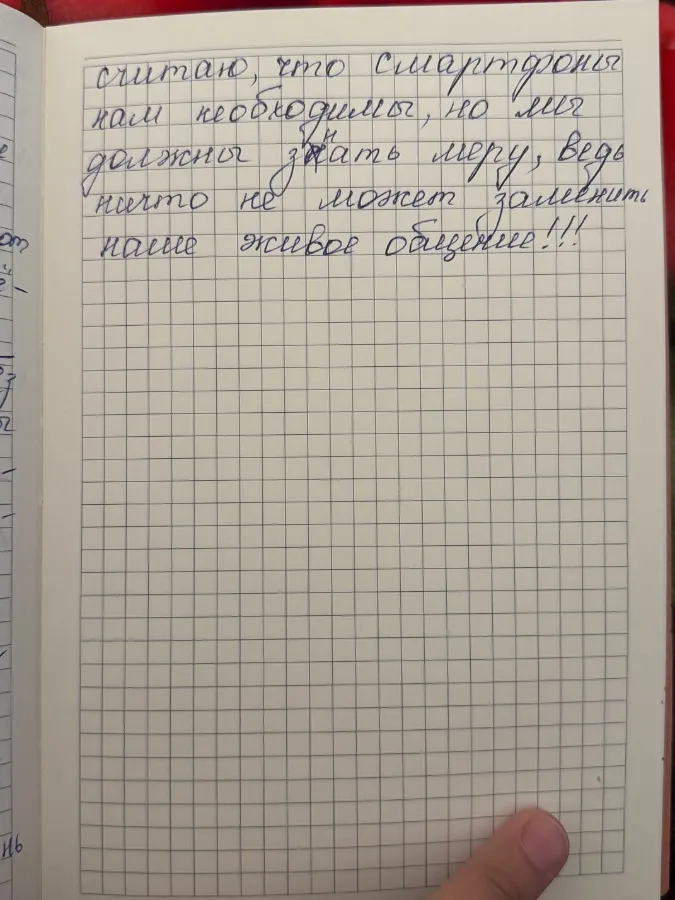 считаю, что смартфоны
нам необходимы, но мы
должны знать меру, ведь
ничто не может заменить
наше живое общение!!!